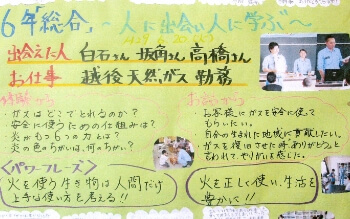 6年「総合」~人に出会い人に学ぶ~
出会えた人 白石さん 坂角さん 高橋さん
お仕事 越後天然ガス勤務
体験から
ガスはどこでとれるのか?
安全に使うための仕組みは?
火がもつ6つの力とは?
火の色のちがいは、何のちがい?
お話から
お客様にガスを安全に使って
もらいたい。
自分の生まれた地域に貢献したい。
ガスを復旧させた時、ありがとう。と
言われて、やりがいを感じた。
〈パワーフレーズ〉
火を使う生き物は人間だけ
上手な使い方を考える!!
火を正しく使い、生活を
豊かに!!